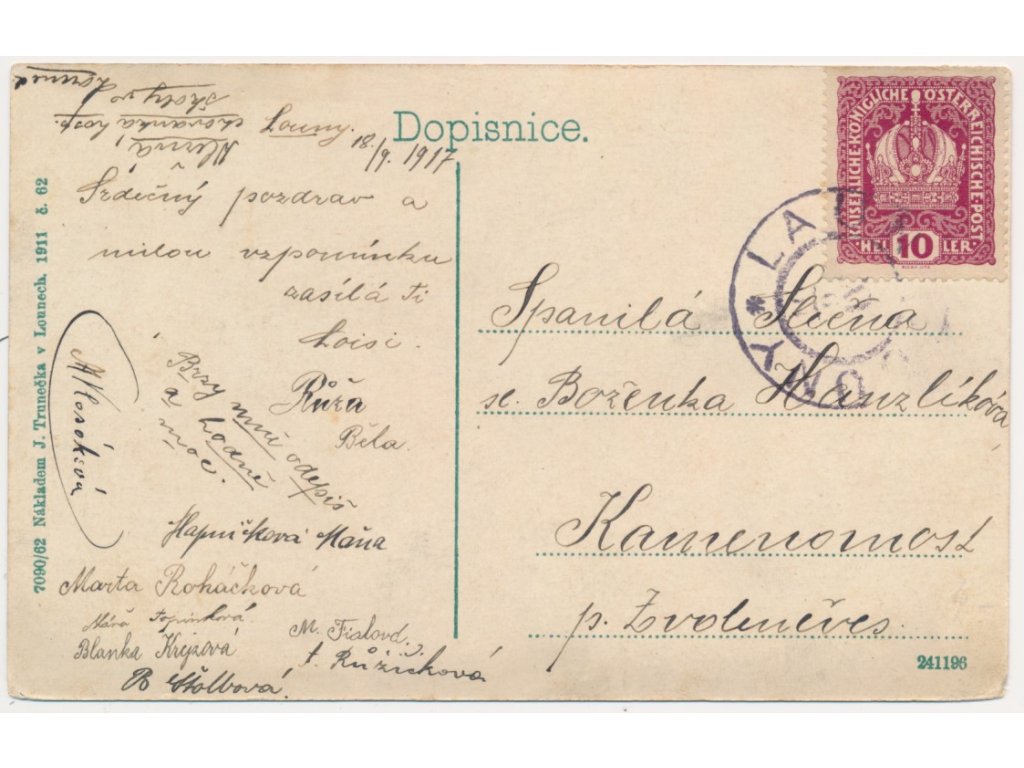 Dopisnice.
Louny. 18./9. 1917
Srdečný pozdrav a
milou vzpomínku
zasílá Ti
Loisi.
Růža
Běla.
Brzy mně odepiš
a hodně
moc.
Hapničková Máňa
Marta Roháčková
Topinková
Blanka Krýzová
M. Fialová.
t. Růžičková
B Štolbová.
škoty v
chovanka hosp.
7090/62 Nákladem J. Trunečka v Lounech. 1911 č. 62
KAISERLICHE KÖNIGLICHE ÖSTERREICHISCHE POST
HEL 10 LER
LAUN
LOUNY
Spanilá Slečna
sl. Boženka Hanzlíková
Kamenomost
p. Zvoleněves.
241196